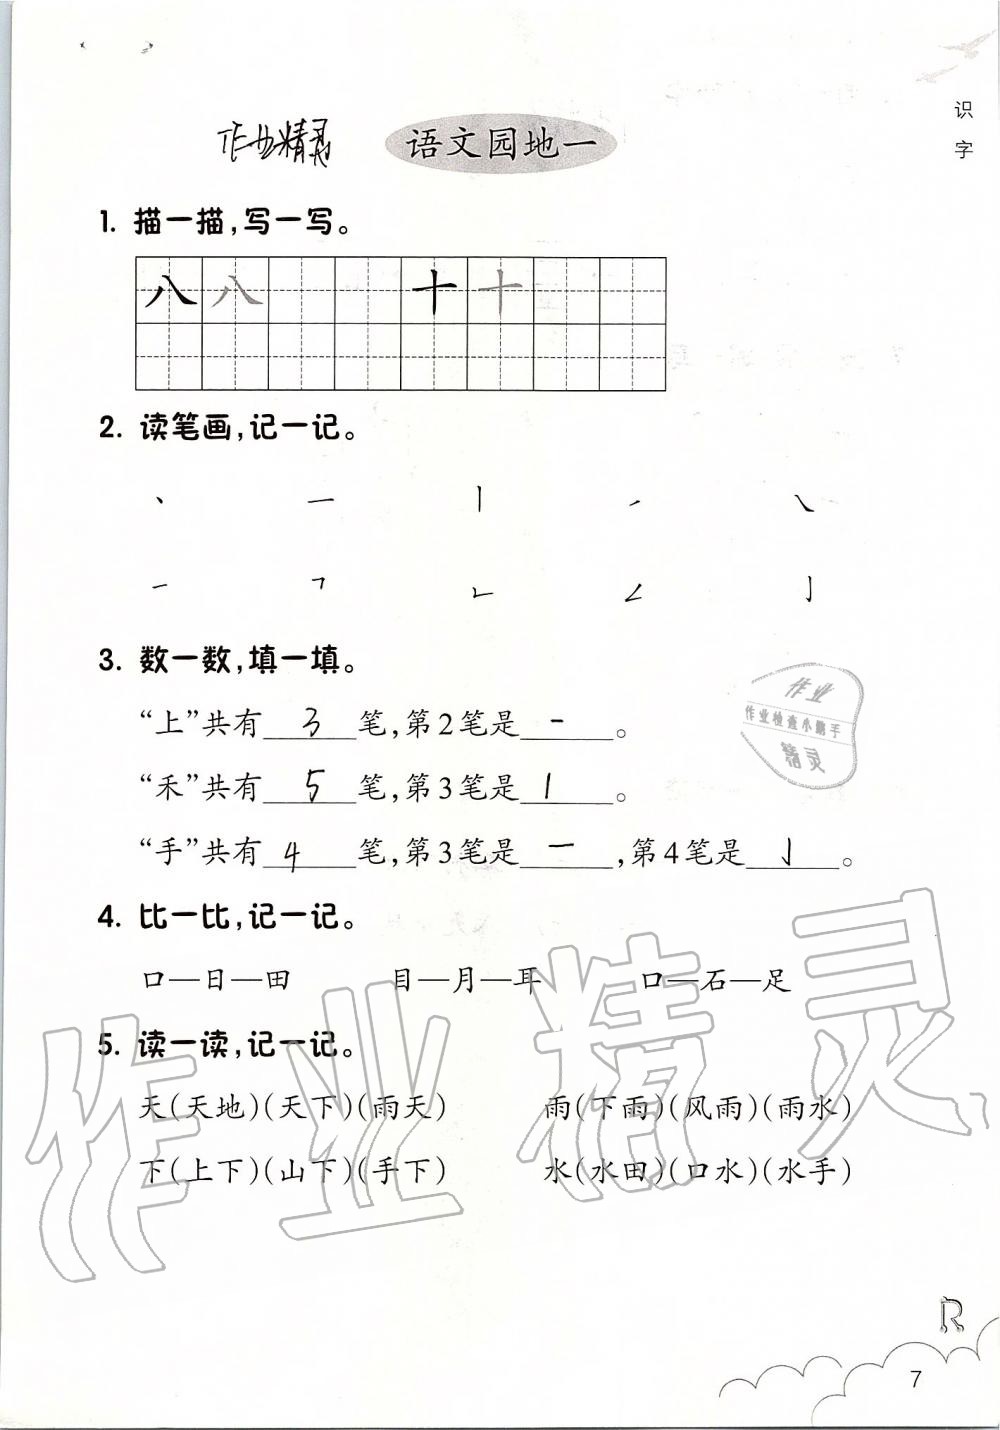 识
字
作业精灵
语文园地一
1. 描一描,写一写。
八 八 十 十
2. 读笔画,记一记。
丶 一 丨 ㇀ ㇏
㇐ ㇕ ㇗ ㇜ 亅
3. 数一数,填一填。
“上”共有 3 笔,第2笔是 一 。
“禾”共有 5 笔,第3笔是 丨 。
“手”共有 4 笔,第3笔是 一 ,第4笔是 亅 。
作业
作业检查小助手
精灵
4. 比一比,记一记。
口—日—田 目—月—耳 口—石—足
5. 读一读,记一记。
天(天地)(天下)(雨天) 雨(下雨)(风雨)(雨水)
下(上下)(山下)(手下) 水(水田)(口水)(水手)
作业精灵
R
7